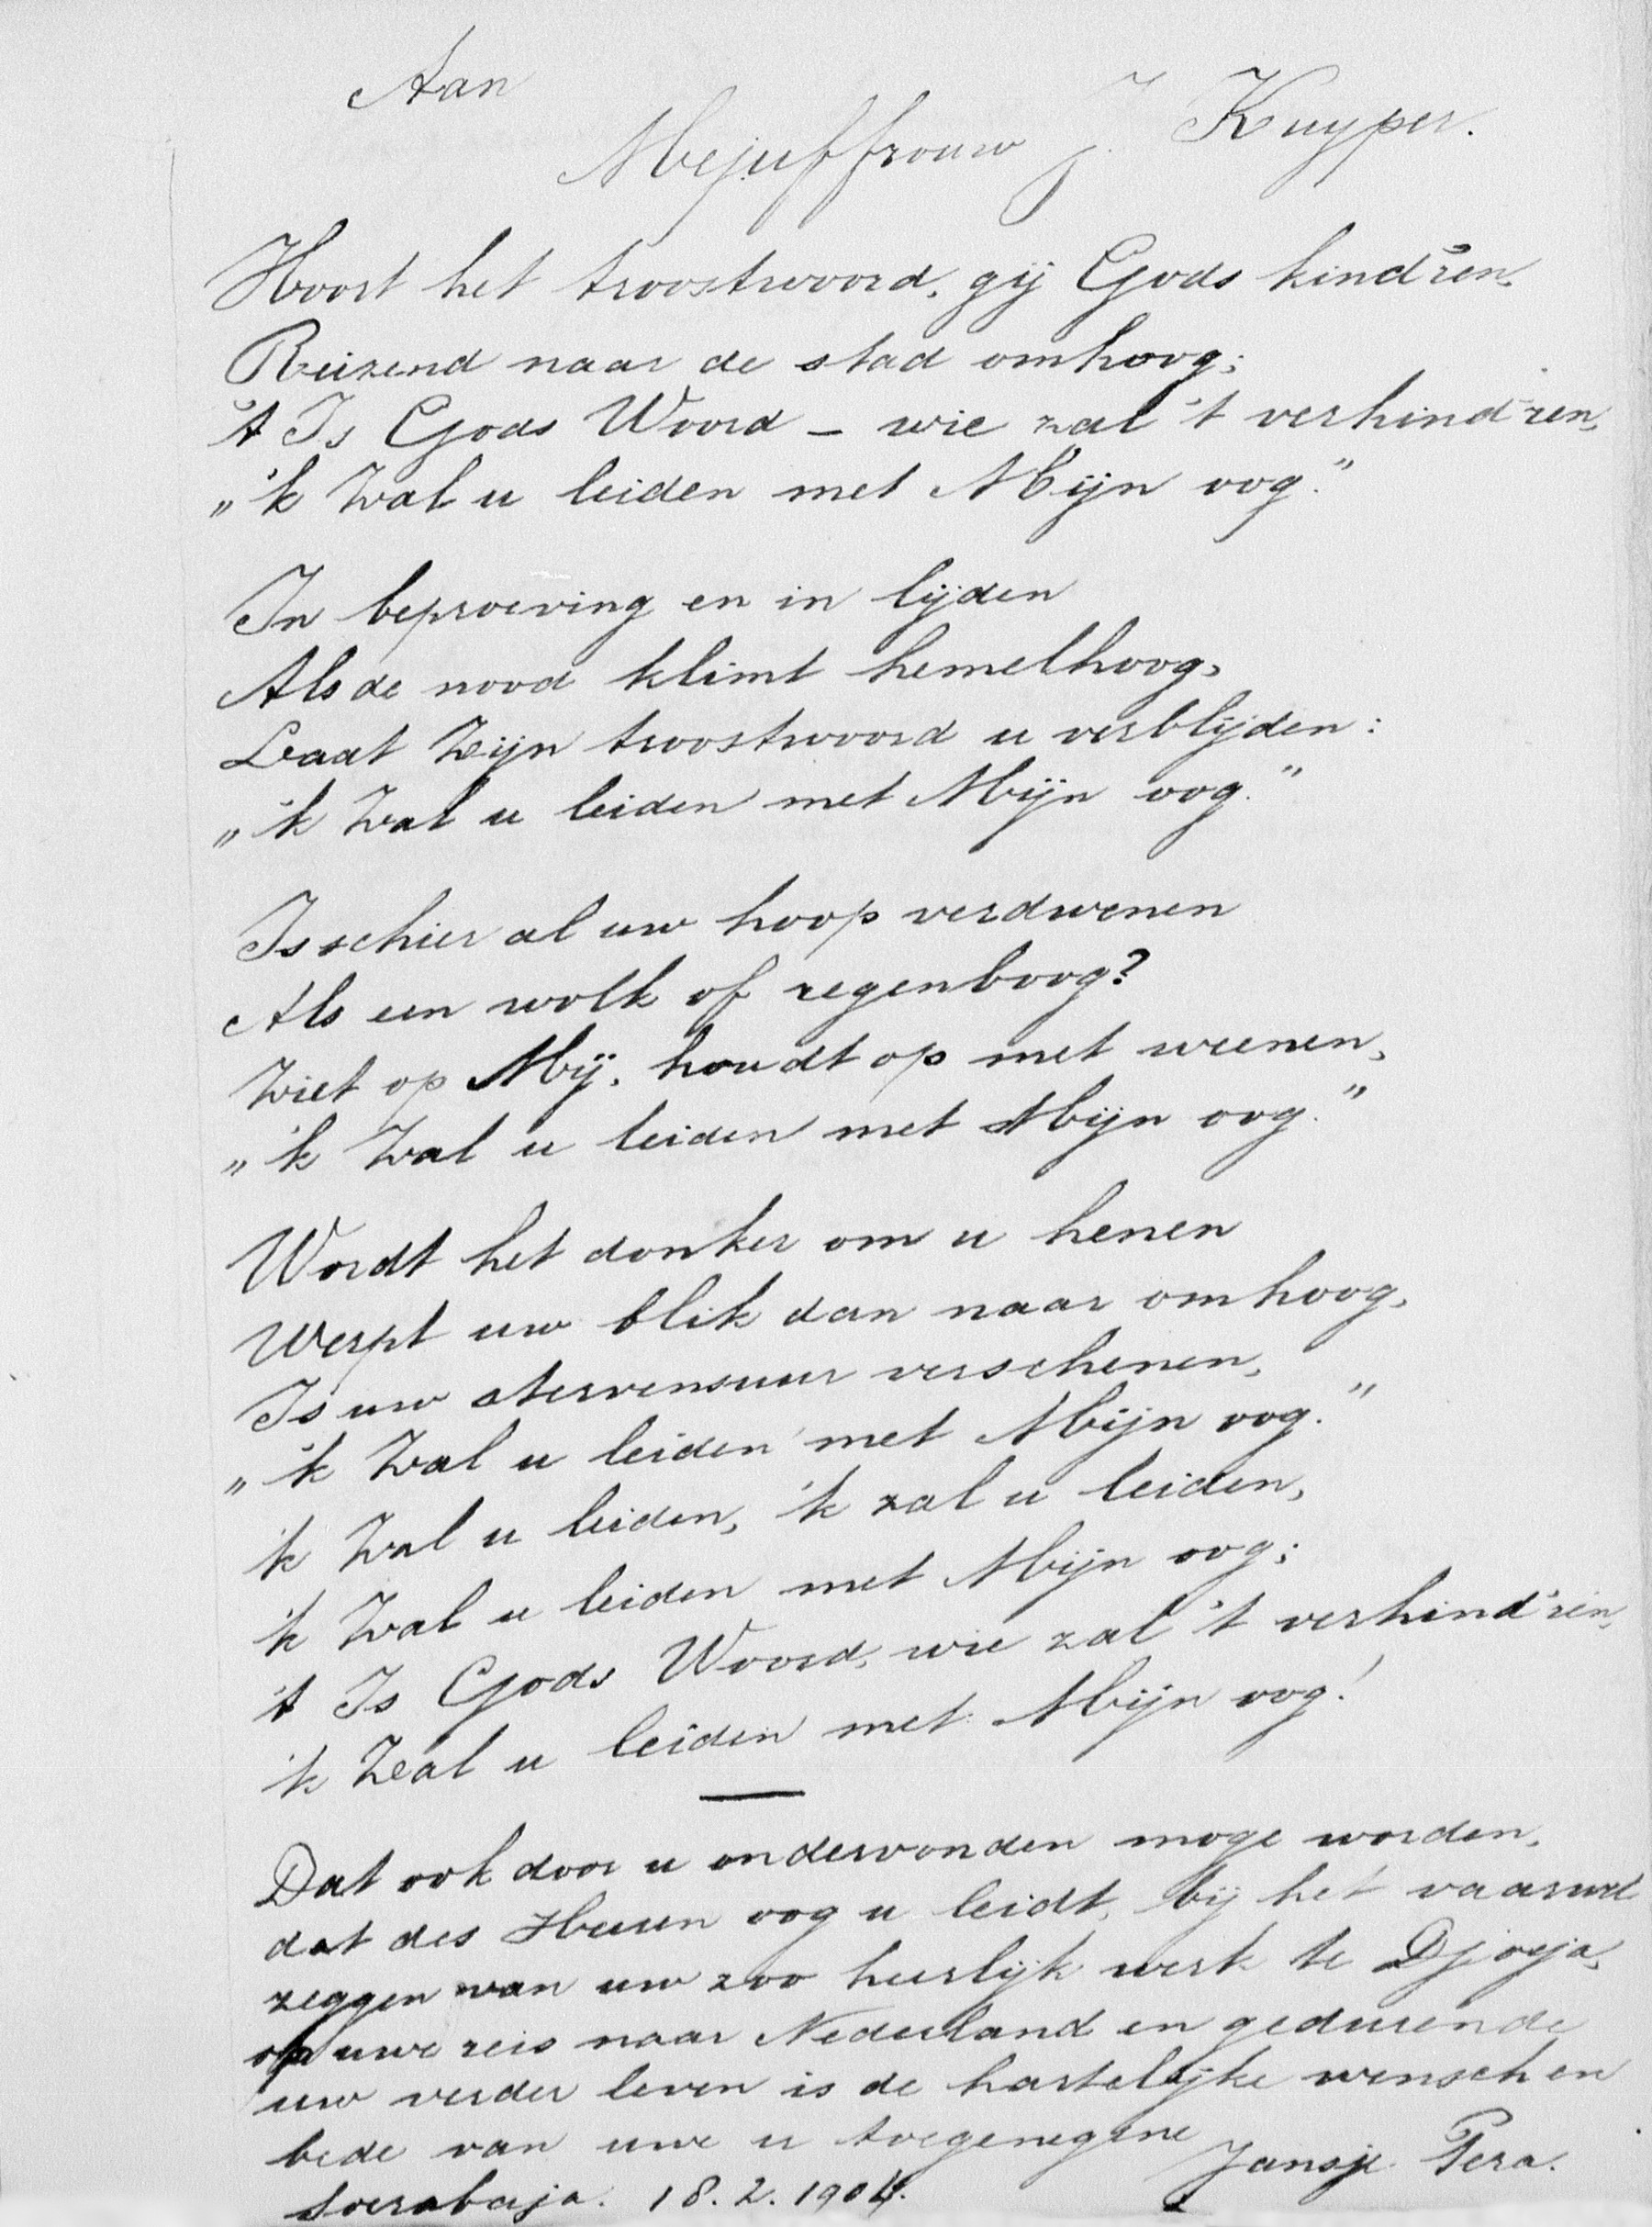 Aan
Mejuffrouw J. Kuyper.
Hoort het troostwoord, gij Gods kind'ren,
Reizend naar de stad omhoog;
't Is Gods Woord – wie zal 't verhind'ren,
„'k Zal u leiden met Mijn oog."
In beproeving en in lijden
Als de nood klimt hemelhoog,
Laat Zijn troostwoord u verblijden:
„'k Zal u leiden met Mijn oog."
Is schier al uw hoop verdwenen
Als een wolk of regenboog?
Ziet op Mij, houdt op met weenen,
„'k Zal u leiden met Mijn oog."
Wordt het donker om u henen
Werpt uw blik dan naar omhoog,
Is uw stervensuur verschenen,
„'k Zal u leiden met Mijn oog."
'k Zal u leiden, 'k zal u leiden,
'k Zal u leiden met Mijn oog;
't Is Gods Woord, wie zal 't verhind'ren,
'k Zal u leiden met Mijn oog!
Dat ook door u ondervonden moge worden,
dat des Heeren oog u leidt, bij het vaarwel
zeggen van uw zoo heerlijk werk te Djocja,
op uwe reis naar Nederland en gedurende
uw verder leven is de hartelijke wensch en
bede van uwe u toegenegene
Jansje Pera.
Soerabaja. 18.2.1904.